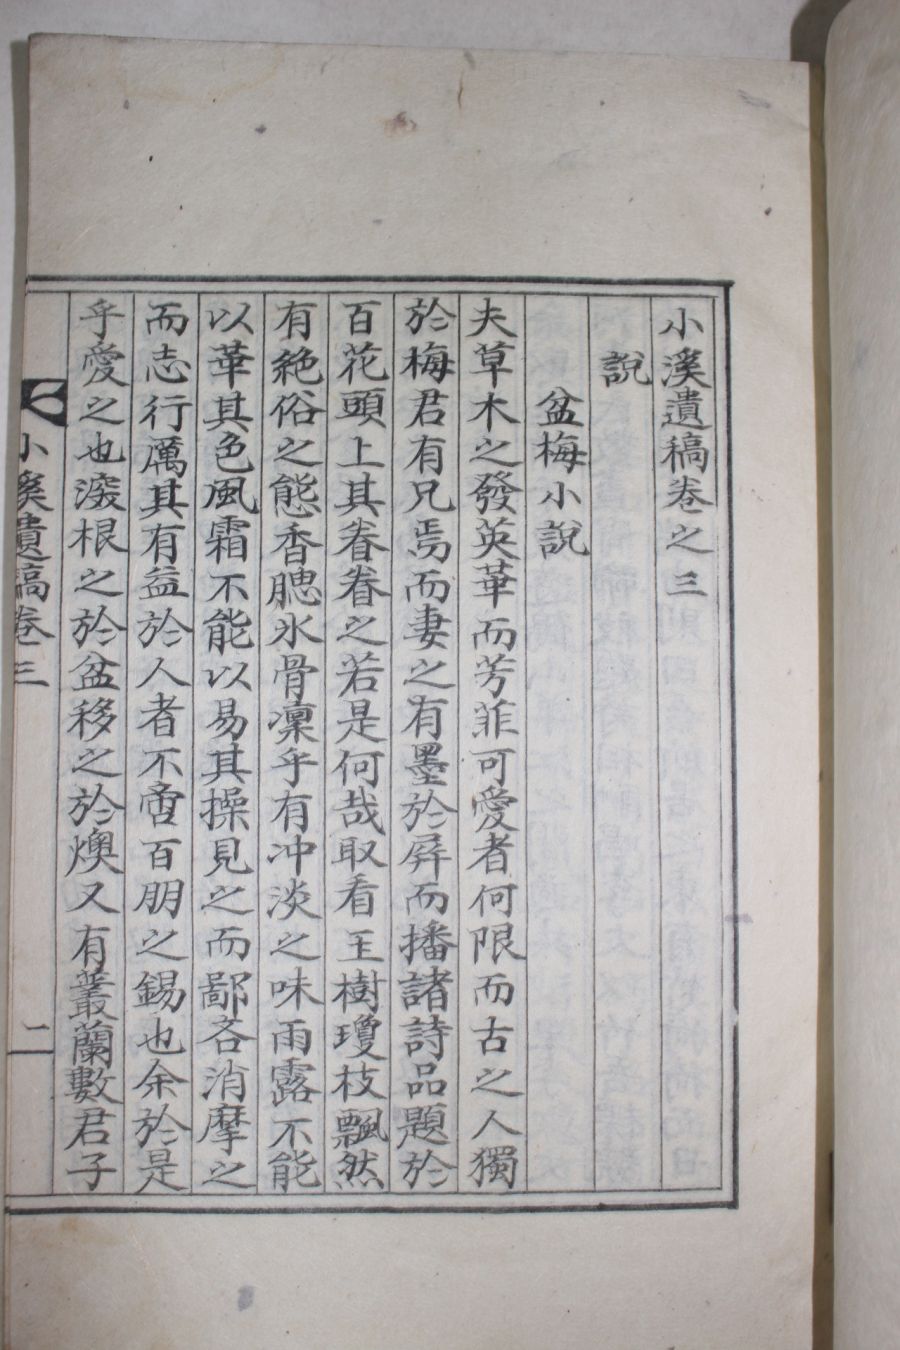 小溪遺稿卷之三
說
盆梅小說
夫草木之發英華而芳菲可愛者何限而古之人獨
於梅君有兄焉而妻之有墨於屛而播諸詩品題於
百花頭上其眷眷之若是何哉取看玉樹瓊枝飄然
有絶俗之態香腮氷骨凜乎有冲淡之味雨露不能
以華其色風霜不能以易其操見之而鄙吝消摩之
而志行厲其有益於人者不啻百朋之錫也余於是
乎愛之也深根之於盆移之於燠又有叢蘭數君子
小溪遺稿卷三
一